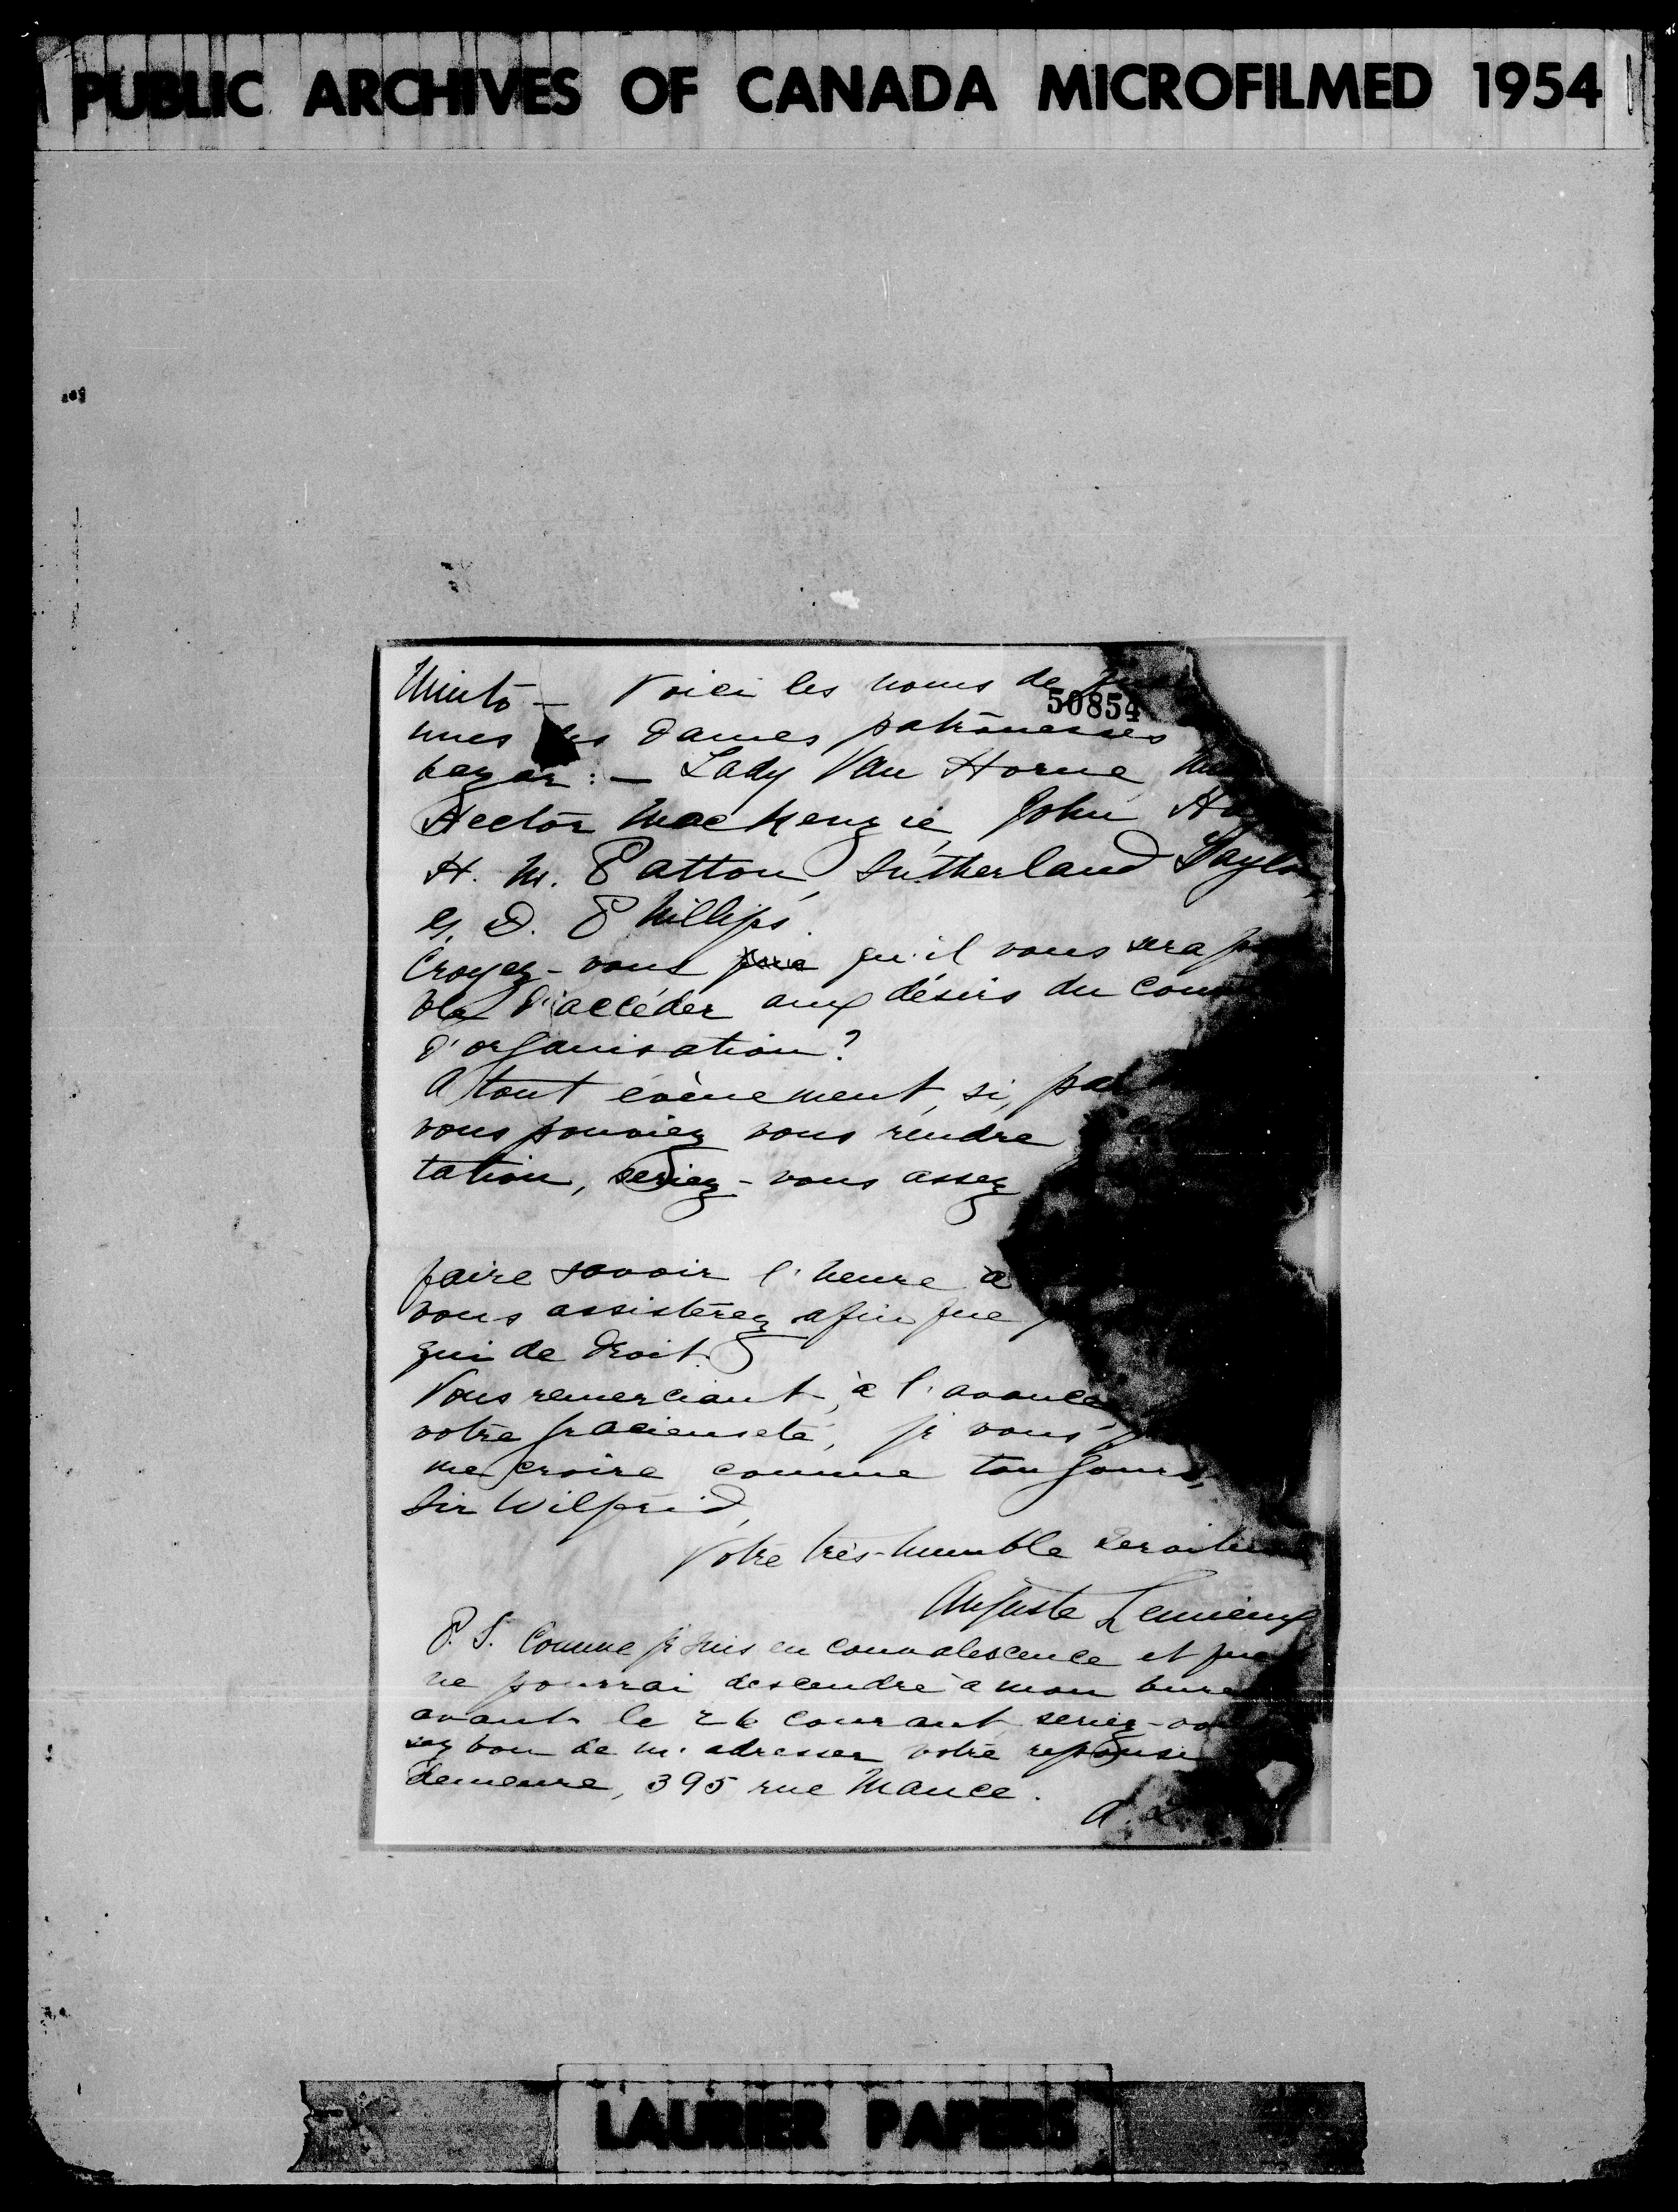 PUBLIC ARCHIVES OF CANADA MICROFILMED 1954
Minto — Voici les noms de
50854
unes des dames patronesses
bazar : — Lady Van Horne
Hector MacKenzie, John
H. M. Patton, Sutherland Taylor,
D. Phillips.
Croyez-vous qu'il vous sera
ble d'accéder aux désirs du
d'organisation ?
A tout évènement, si, par
vous pouviez vous rendre
tation, seriez-vous assez
faire savoir l'heure à
vous assisterez afin que
qui de droit.
Vous remerciant, à l'avance
votre gracieuseté, je vous
me croire comme toujours,
Sir Wilfrid,
Votre très-humble serviteur
Auguste Lemieux
P.S. Comme je suis en convalescence et que
ne pourrai descendre à mon bureau
avant le 26 courant seriez-vous
sez bon de m'adresser votre réponse
demeure, 395 rue Mance.
A. L.
LAURIER PAPERS